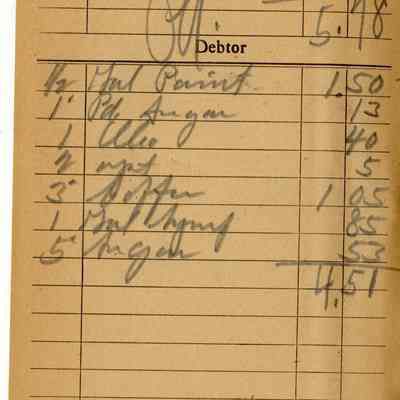 5.78
Debtor
1/2 Gal Paint 1.50
1 Pd Sugar 13
1 Oleo 40
5
3 Coffee 1 05
1 Gal Syrup 85
5 Sugar 53
4.51